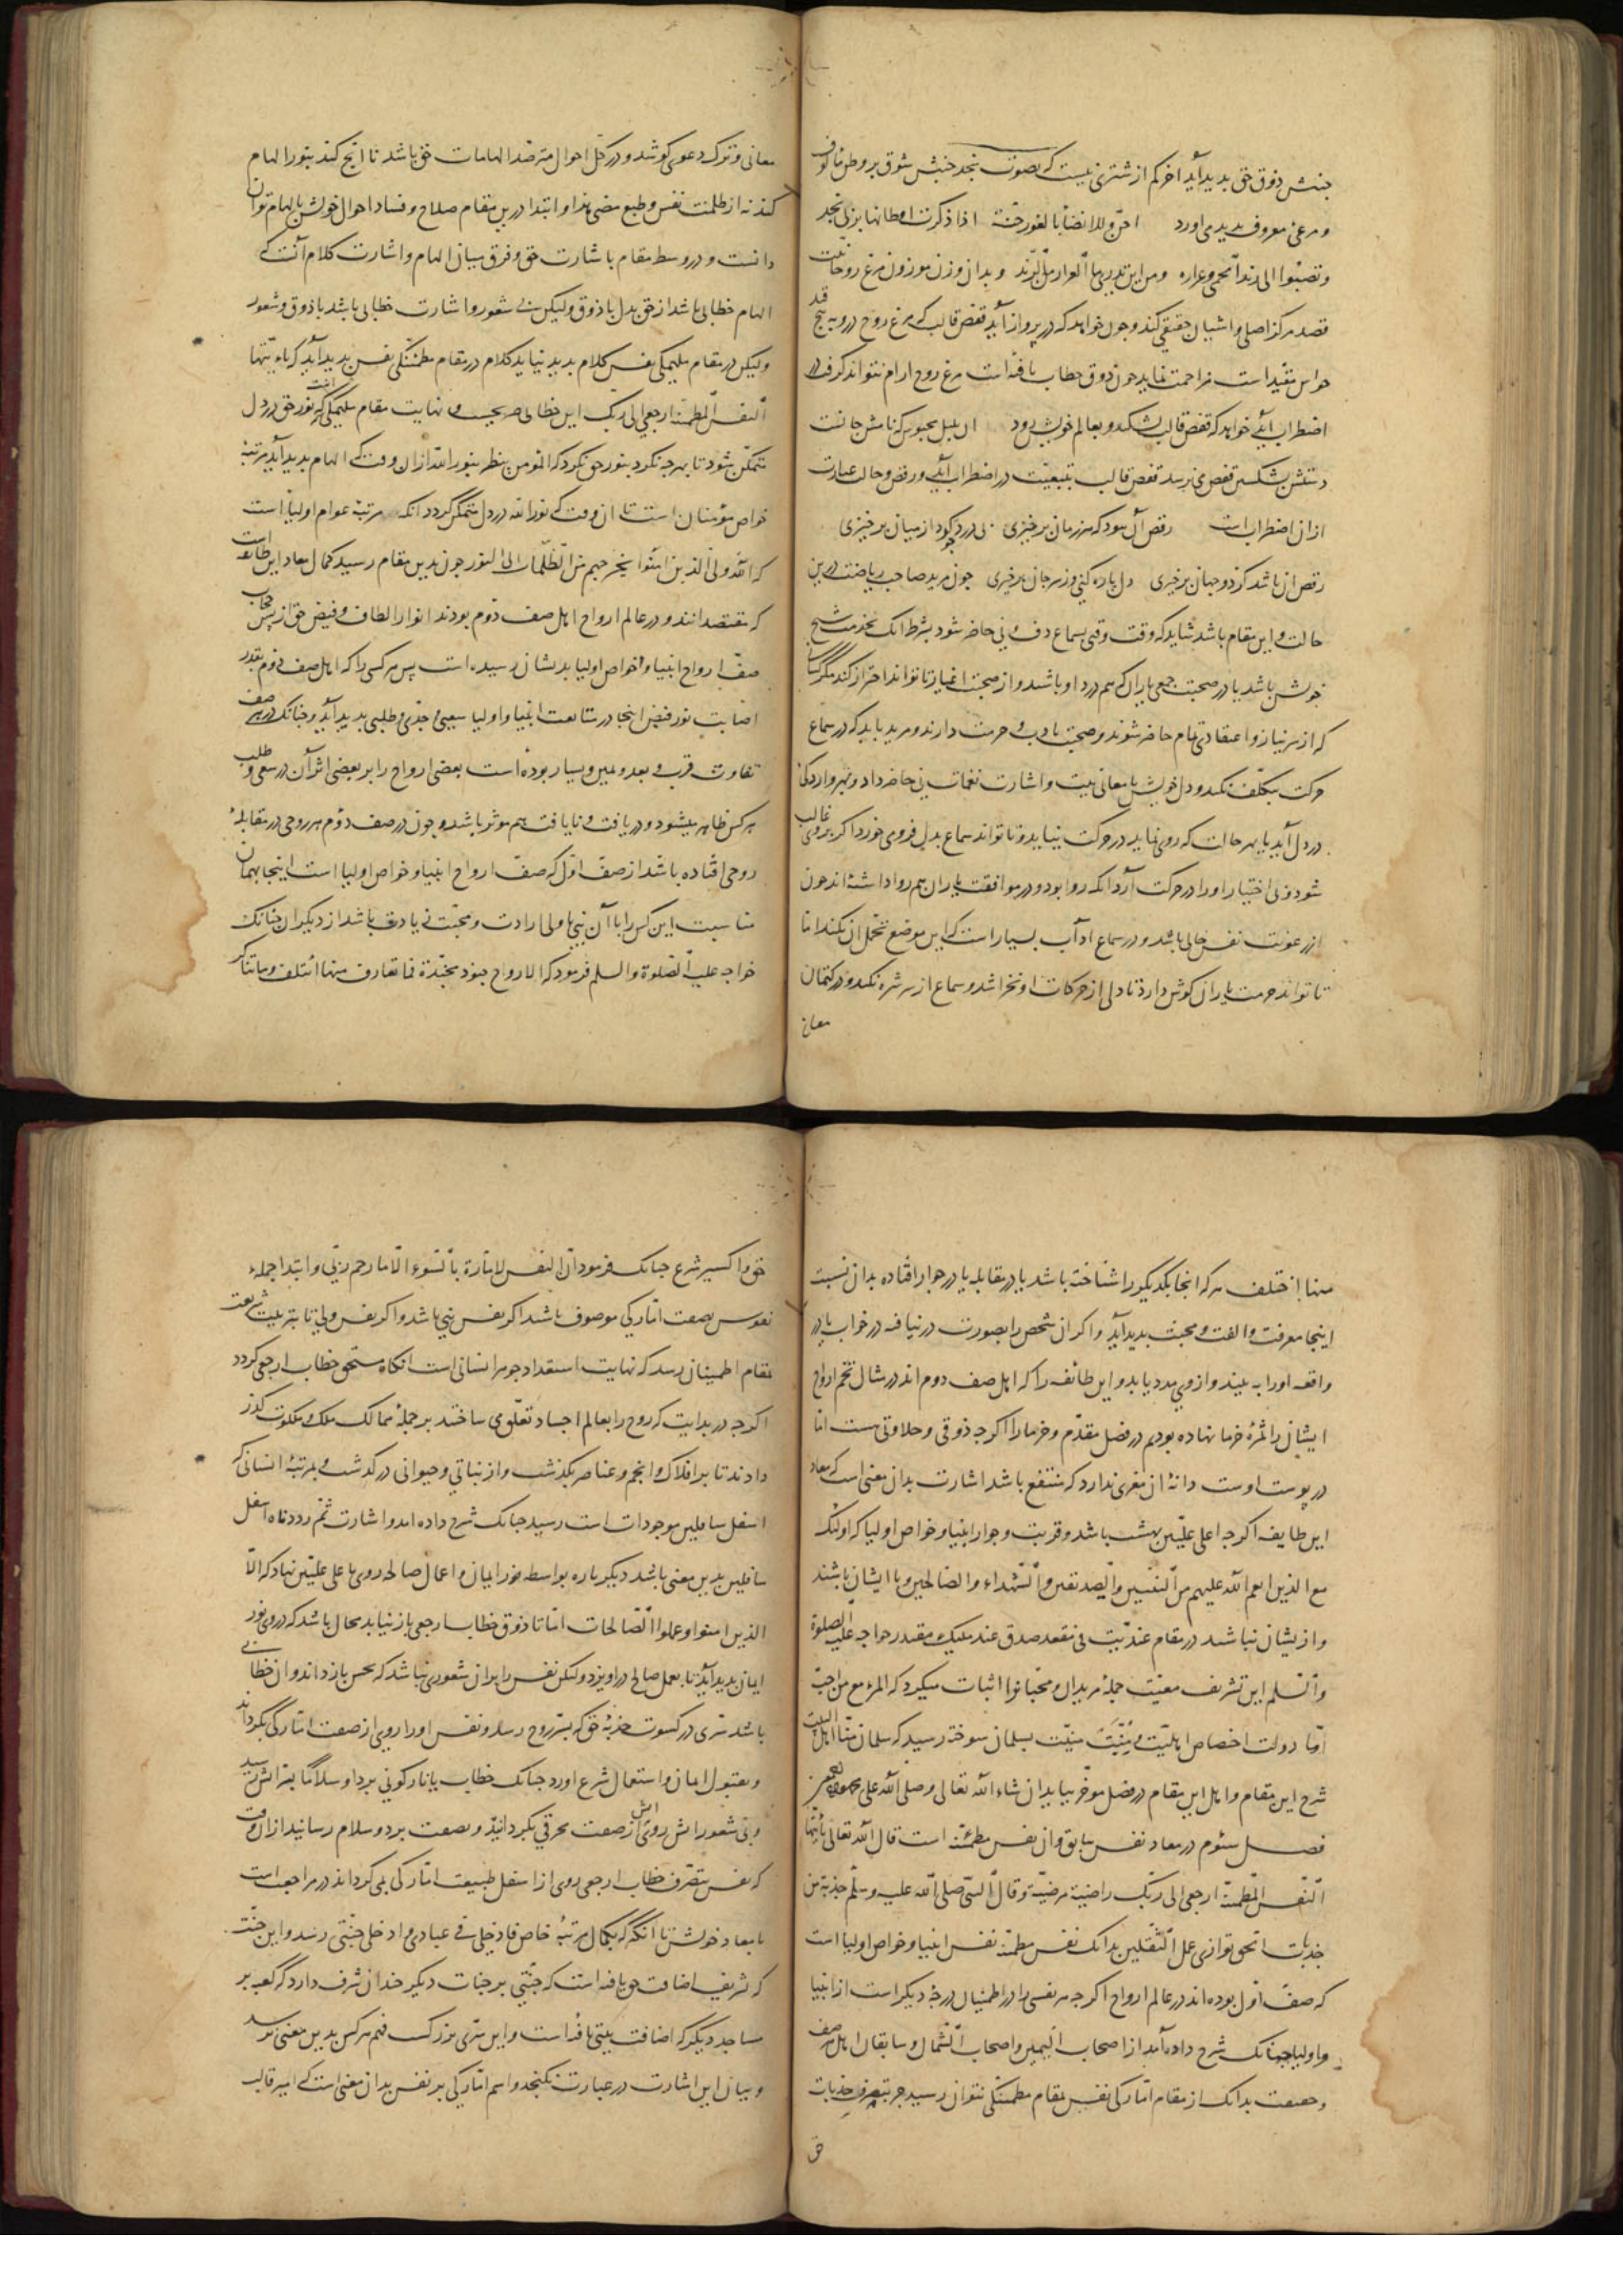 جنبش ذوق حق بدید آید آخر کم از شتری نیست که بصوت نجد جنبش شوق بر وطن مألوف
و مرعی معروف بدید می‌اورد احن وللانضا بالغور حنة اذا ذکرت اوطانها بربی نجد
وتصبوا الی رند الحمی وعراره ومن این تدری ما العرار من الرند و بدان وزن موزون مرغ روحانیت
قصد مرکز اصلی و اشیان حقیقی کند و چون خواهد که در پرواز آید قفص قالب که مرغ روح درو به پنج
حواس مقید است مزاحمت نماید چون ذوق خطاب یافته است مرغ روح ارام نتواند کرفت در
اضطراب آید خواهد که قفص قالب بشکند و بعالم خویش رود ان بلبل محبوس که نامش جانست
دستش بشکستن قفص می نرسد قفص قالب بتبعیت در اضطراب آید و رقص و حالت عبارت
ازان اضطراب است رقص آن نبود که هر زمان برخیزی بی درد چو کرد از میان برخیزی
رقص ان باشد کز دو جهان برخیزی دل پاره کنی وز سر جان برخیزی چون مرید صاحب ریاضت درین
حالت و این مقام باشد شاید که وقت وقتی بسماع دف و نی حاضر شود بشرط انک بخدمت شیخ
خویش باشد یا در صحبت جمعی یاران که هم درد او باشند و از صحبت اغیار تا تواند احتراز کند مگر کسانی
که از سر نیاز و اعتقادی تمام حاضر شوند و صحبت بادب و حرمت دارند و مرید باید که در سماع
حرکت بتکلف نکند و دل خویش با معانی بیت و اشارت نغمات نی حاضر دارد و بهر واردی که
در دل آید یا بهر حالت که روی نماید در حرکت نیاید و تا تواند سماع بدل فروی خورد اکر بروی غالب
شود و بی اختیار او را در حرکت آرد انکه روا بود و در موافقت یاران هم روا داشته‌اند چون
از رعونت نفس خالی باشد و در سماع ادآب بسیار است که این موضع تحمل ان نکند اما
تا تواند حرمت یاران کوش دارد تا دلی از حرکات او نخراشد و سماع از سر شره نکند و در کتمان
معانی
معانی و ترک دعوی کوشد و در کل احوال مترصد الهامات حق باشد تا انچ کند بنور الهام
کند نه از ظلمت نفس و طبع مضی هذا و ابتدا درین مقام صلاح و فساد احوال خویش بالهام توان
دانست و در وسط مقام باشارت حق و فرق میان الهام و اشارت کلام آنست که
الهام خطابی باشد از حق بدل با ذوق ولیکن بی شعور و اشارت خطابی باشد با ذوق و شعور
ولیکن در مقام ملهمکی نفس کلام بدید نیاید کلام در مقام مطمئنکی نفس بدید آید که یا ایتها
النفس المطمئنة ارجعی الی ربک این خطابی صریحست و نهایت مقام ملهمکی انست که نور حق در دل
متمکن شود تا بهرچه نکرد بنور حق نکرد که المومن ینظر بنور الله از ان وقت که الهام بدید آید مرتبهٔ
خواص مؤمنان است تا ان وقت که نور الله در دل متمکن کردد انکه مرتبهٔ عوام اولیا است
که الله ولی الذین امنوا یخرجهم من الظلمات الی النور چون بدین مقام رسید کمال معاد این طایفه است
که مقتصدانند و در عالم ارواح اهل صف دوم بودند انوار الطاف و فیض حق از پس حجاب
صف ارواح انبیا و خواص اولیا بدیشان رسیده است پس هرکسی را که اهل صف دوم بقدر
اصابت نور فیض اینجا در متابعت انبیا و اولیا سعیی و جدی و طلبی بدید آید و چنانک در هر صف
تفاوت قرب و بعد و یمین و یسار بوده است بعضی ارواح را بر بعضی اثر آن در سعی و طلب
هرکس ظاهر میشود و در یافت و نایافت هم موثر باشد و چون در صف دوم هر روحی در مقابلهٔ
روحی افتاده باشد از صف اول که صف ارواح انبیا و خواص اولیا است اینجا بهمان
مناسبت این کس را با آن نبی یا ولی ارادت و محبت زیادت باشد از دیکران چنانک
خواجه علیه الصلوة والسلم فرمود که الارواح جنود مجندة فما تعارف منها ائتلف وما تناکر
منها اختلف هرکه انجا یکدیکر را شناخته باشد یا در مقابله یا در جوار افتاده بدان نسبت
اینجا معرفت و الفت و محبت بدید آید و اکر ان شخص را بصورت در نیافته در خواب یا در
واقعه او را به بیند و از وی مدد یابد و این طائفه را که اهل صف دوم اند در مثال تخم ارواح
ایشان را ثمرهٔ خرما نهاده بودیم در فصل مقدم و خرما را اکرچه ذوقی و حلاوتی هست اما
در پوست اوست دانهٔ ان مغزی ندارد که منتفع باشد اشارت بدان معنی است که معاد
این طایفه اکرچه اعلی علیین بهشت باشد و قربت و جوار انبیا و خواص اولیا که اولئک
مع الذین انعم الله علیهم من النبیین والصدیقین والشهداء والصالحین و با ایشان باشند
و از یشان نباشند در مقام عندیت فی مقعد صدق عند ملیک مقتدر خواجه علیه الصلوة
والسلم این تشریف معیت جملهٔ مریدان و محبانرا اثبات میکرد که المرء مع من احب
اما دولت اختصاص اهلیت و منیت بسلمان سوخته رسید که سلمان منا اهل البیت
شرح این مقام و اهل این مقام در فصل موخر بیاید ان شاء الله تعالی وصلی الله علی محمد
فصل سئوم در معاد نفس سابق و ان نفس مطمئنه است قال الله تعالی یا ایتها
النفس المطمئنة ارجعی الی ربک راضیة مرضیة وقال النبی صلی الله علیه وسلم جذبة من
جذبات الحق توازی عمل الثقلین بدانک نفس مطمئنه نفس انبیا و خواص اولیا است
که صف اول بوده‌اند در عالم ارواح اکرچه هر نفسی را در اطمینان درجهٔ دیکر است از انبیا
و اولیا چنانک شرح داده آمد از اصحاب الیمین و اصحاب الشمال و سابقان اهل هر صف
و حقیقت بدانک از مقام امارکی نفس بمقام مطمئنکی نتوان رسید جز بتصرف جذبات
حق
حق و اکسیر شرع چنانک فرمود ان النفس لامارة بالسوء الا ما رحم ربی و ابتدا جملهٔ
نفوس بصفت امارکی موصوف باشد اکر نفس نبی باشد و اکر نفس ولی تا بتربیت شریعت
بمقام اطمینان رسد که نهایت استعداد جوهر انسانی است انکاه مستحق خطاب ارجعی کردد
اکرچه در بدایت که روح را بعالم اجساد تعلق می ساختند بر جملهٔ ممالک ملک و ملکوت کذر
دادند تا بر افلاک و انجم و عناصر بکذشت و از نباتی و حیوانی در کذشت و بمرتبهٔ انسانی که
اسفل سافلین موجودات است رسید چنانک شرح داده امد و اشارت ثم رددناه اسفل
سافلین بدین معنی باشد دیکر باره بواسطهٔ نور ایمان و اعمال صالحه روی باعلی علیین نهاد که الا
الذین امنوا وعملوا الصالحات اما تا ذوق خطاب ارجعی باز نیابد محال باشد که در وی نور
ایمان بدید آید تا بعمل صالح در اویزد ولکن نفس را بران شعوری نباشد که بحس باز داند و ان خطابی
باشد سری در کسوت جذبهٔ حق که بسر روح رسد و نفس او را روی از صفت امارکی بکرداند
و بقبول ایمان و استعمال شرع اورد چنانک خطاب یا نار کونی بردا وسلاما بآتش رسید
و بی شعور اتش روی اتش از صفت محرقی بکردانید و بصفت برد و سلام رسانید از ان وقت
که نفس بتصرف خطاب ارجعی روی از اسفل طبیعت امارکی می کرداند در مراجعت است
با معاد خویش تا انکه که بکمال مرتبهٔ خاص فادخلی فی عبادی وادخلی جنتی رسد و این جنت
که شریف اضافت حق یافته است که جنتی بر جنات دیکر چندان شرف دارد که کعبه بر
مساجد دیکر که اضافت بیتی یافته است و این سری بزرکست فهم هرکس بدین معنی نرسد
و بیان این اشارت در عبارت نکنجد و اسم امارکی بر نفس بدان معنی است که امیر قالب